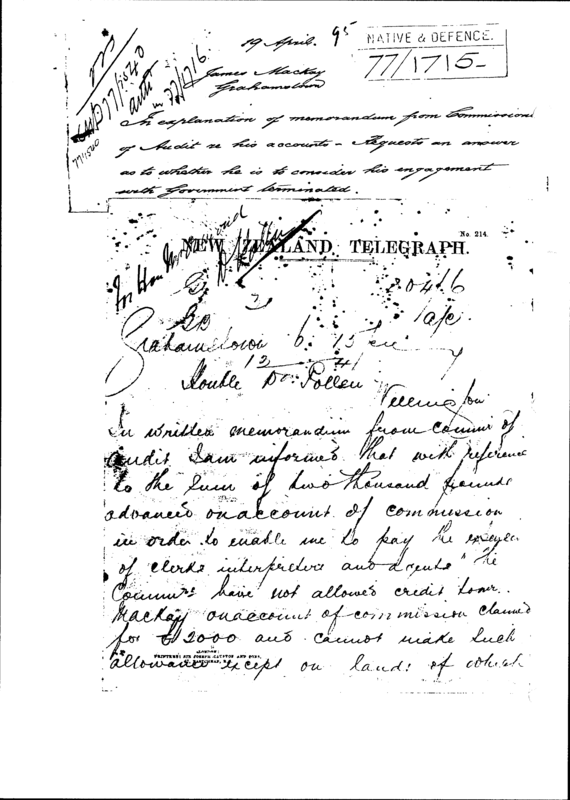 19 April. 95
NATIVE & DEFENCE.
77/1715
77/1540
77/1716
James Mackay
Grahamstown
In explanation of memorandum from Commissioners
of Audit re his accounts – Requests an answer
as to whether he is to consider his engagement
with Government terminated.
77/1540
for Hon
No. 214.
NEW ZEALAND TELEGRAPH.
Grahamstown 6. 15
12 41
Double Dr. Pollen
Wellington
In written memorandum from Commr of
Audit I am informed that with reference
to the sum of two thousand pounds
advanced on account of commission
in order to enable me to pay the
of clerks interpreters and agents " the
Commrs have not allowed credit to mr.
Mackay on account of commission claimed
for £2000 and cannot make such
allowance except on lands of which
LONDON:
PRINTERS: SIR JOSEPH CAUSTON AND SONS,
EASTCHEAP,